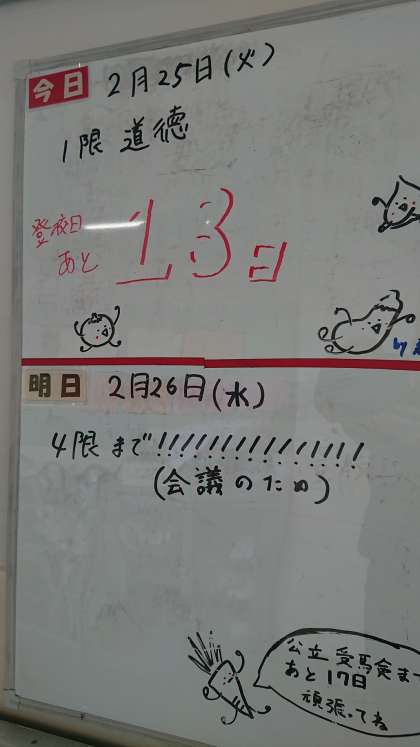 今日 2月25日(火)
1限 道徳
登校日
あと 13日
明日 2月26日(水)
4限まで!!!!!!!!!!!!!!!
(会議のため)
公立受験まで
あと17日
頑張ってね